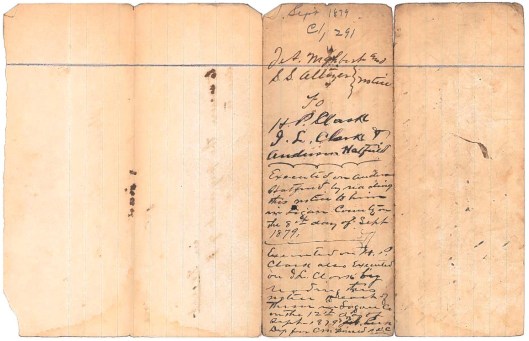 Sept 1879
291
S S Altizer } notice
To
H. P. Clark
J. L. Clark &
Anderson Hatfield
Executed on Anderson
Hatfield by reading
this notice to him
in Logan County on
the 8th day of Sept
1879.
Executed on H. P.
Clark also Executed
on J L Clark by
reading this
notice to each of
them in Logan Co
on the 12th day of
Sept 1879